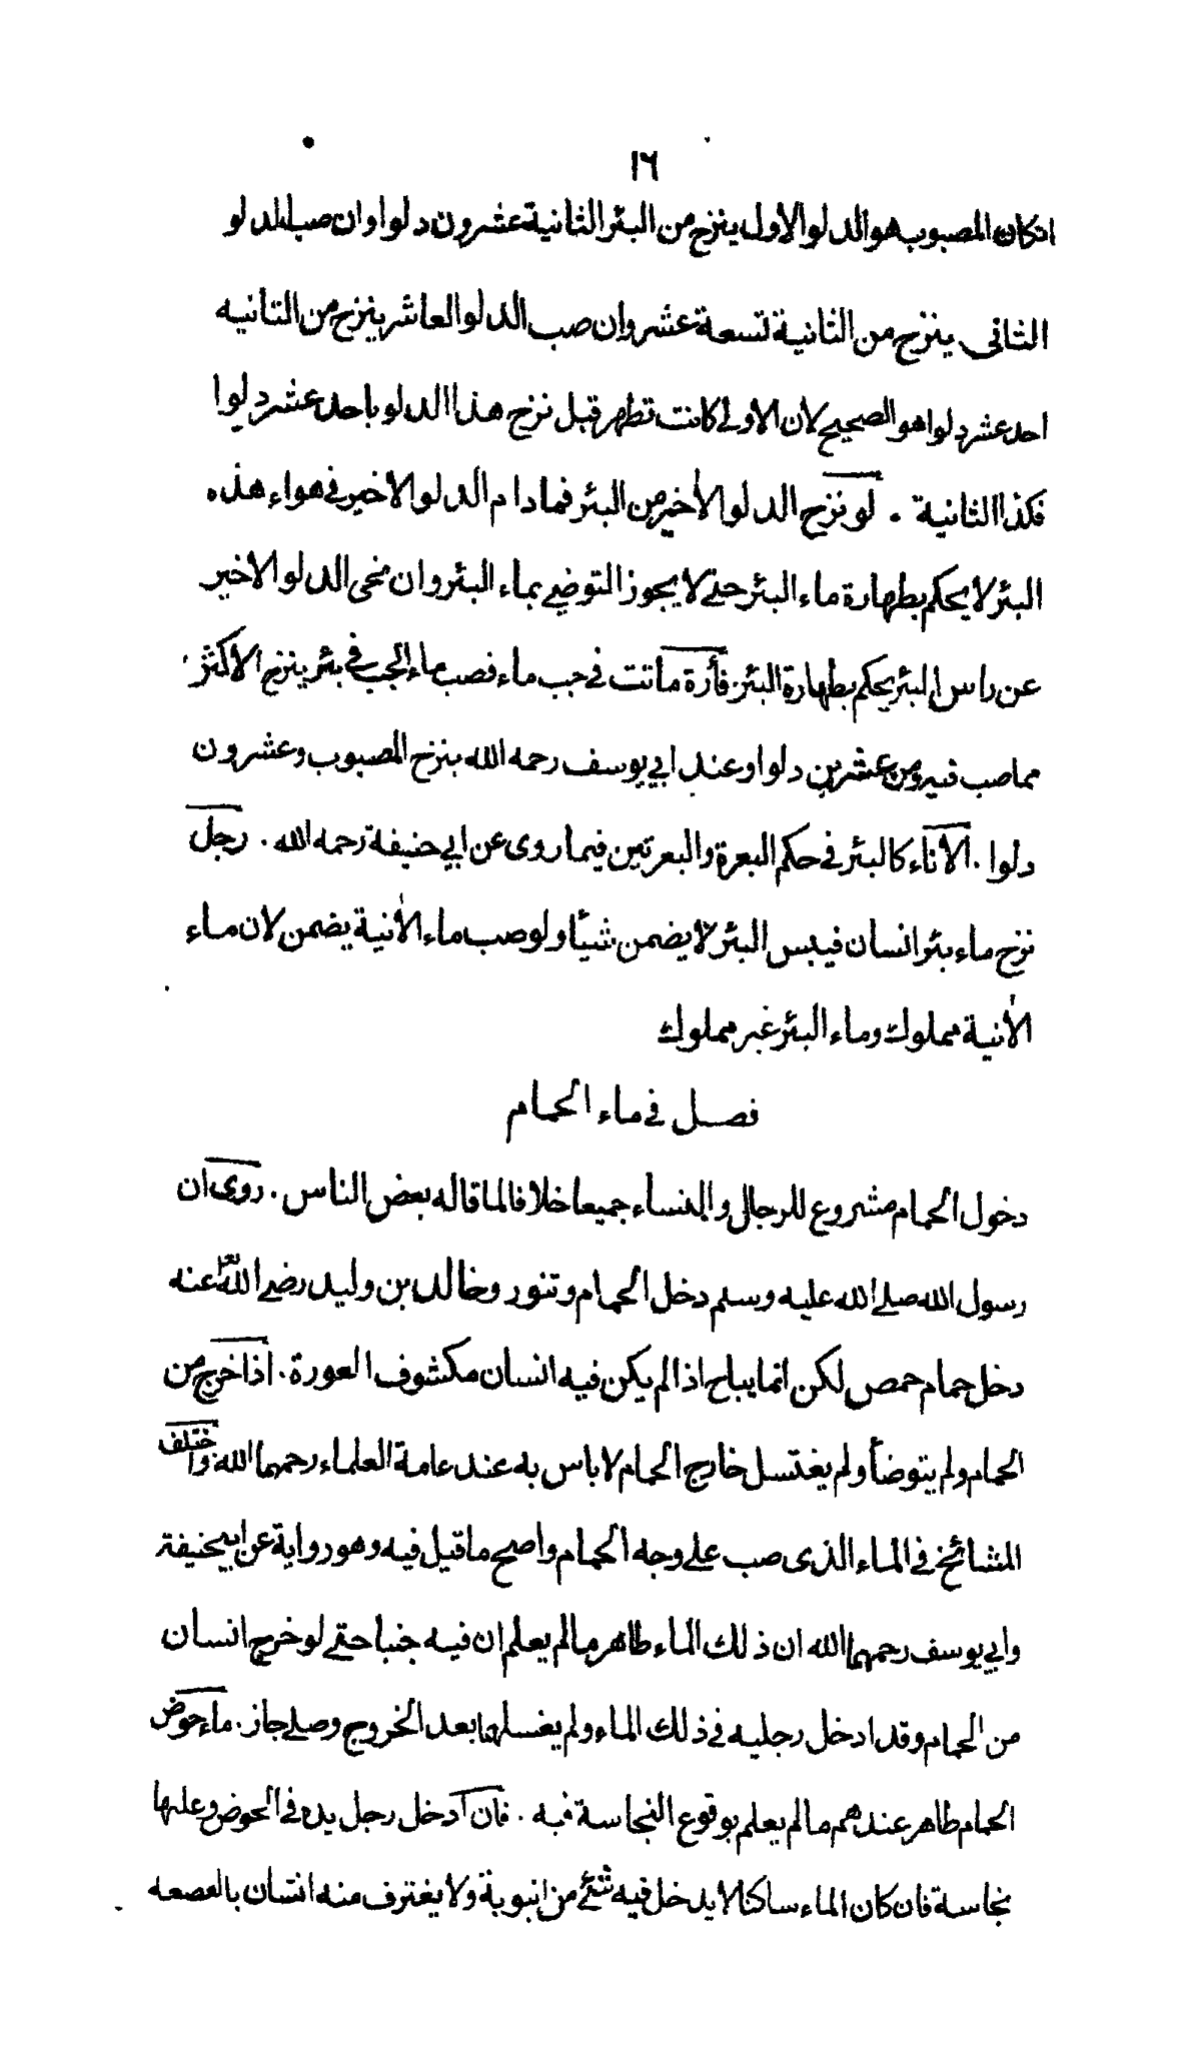 ١٦
انكان المصبوب هو الدلو الاول ينزح من البئر الثانية عشرون دلوا وان صب الدلو
الثانى ينزح من الثانية تسعة عشر وان صب الدلو العاشر ينزح من الثانيه
احد عشر دلوا هو الصحيح لان الاولى كانت تطهر قبل نزح هذا الدلو باحد عشر دلوا
فكذا الثانية . لو نزح الدلو الأخير من البئر فما دام الدلو الاخير فى هواء هذه
البئر لا يحكم بطهارة ماء البئر حتى لا يجوز التوضى بماء البئر وان نحى الدلو الاخير
عن راس البئر يحكم بطهارة البئر . فأرة ماتت فى جب ماء فصب ماء الجب فى بئر ينزح الاكثر
مما صب فيه ومن عشرين دلوا وعند ابي يوسف رحمه الله ينزح المصبوب وعشرون
دلوا . الاناء كالبئر فى حكم البعرة والبعرتين فيما روى عن ابي حنيفة رحمه الله . رجل
نزح ماء بئر انسان فيبس البئر لا يضمن شيئا ولو صب ماء الأنية يضمن لان ماء
الأنية مملوك وماء البئر غير مملوك
فصل فى ماء الحمام
دخول الحمام مشروع للرجال والنساء جميعا خلافا لما قاله بعض الناس . روى ان
رسول الله صلى الله عليه وسلم دخل الحمام وتنور وخالد بن وليد رضى الله عنه
دخل حمام حمص لكن انما يباح اذا لم يكن فيه انسان مكشوف العورة . اذا خرج من
الحمام ولم يتوضأ ولم يغتسل خارج الحمام لا باس به عند عامة العلماء رحمهما الله . واختلف
المشائخ فى الماء الذى صب على وجه الحمام واصح ما قيل فيه وهو رواية عن ابي حنيفة
وابي يوسف رحمهما الله ان ذلك الماء طاهر ما لم يعلم ان فيه جنبا حتى لو خرج انسان
من الحمام وقد ادخل رجليه فى ذلك الماء ولم يغسلهما بعد الخروج وصلى جاز . ماء حوض
الحمام طاهر عندهم ما لم يعلم بوقوع النجاسة فيه . فان ادخل رجل يده فى الحوض وعليها
نجاسة فان كان الماء ساكنا لا يدخل فيه شئ من انبوبة ولا يغترف منه انسان بالقصعه